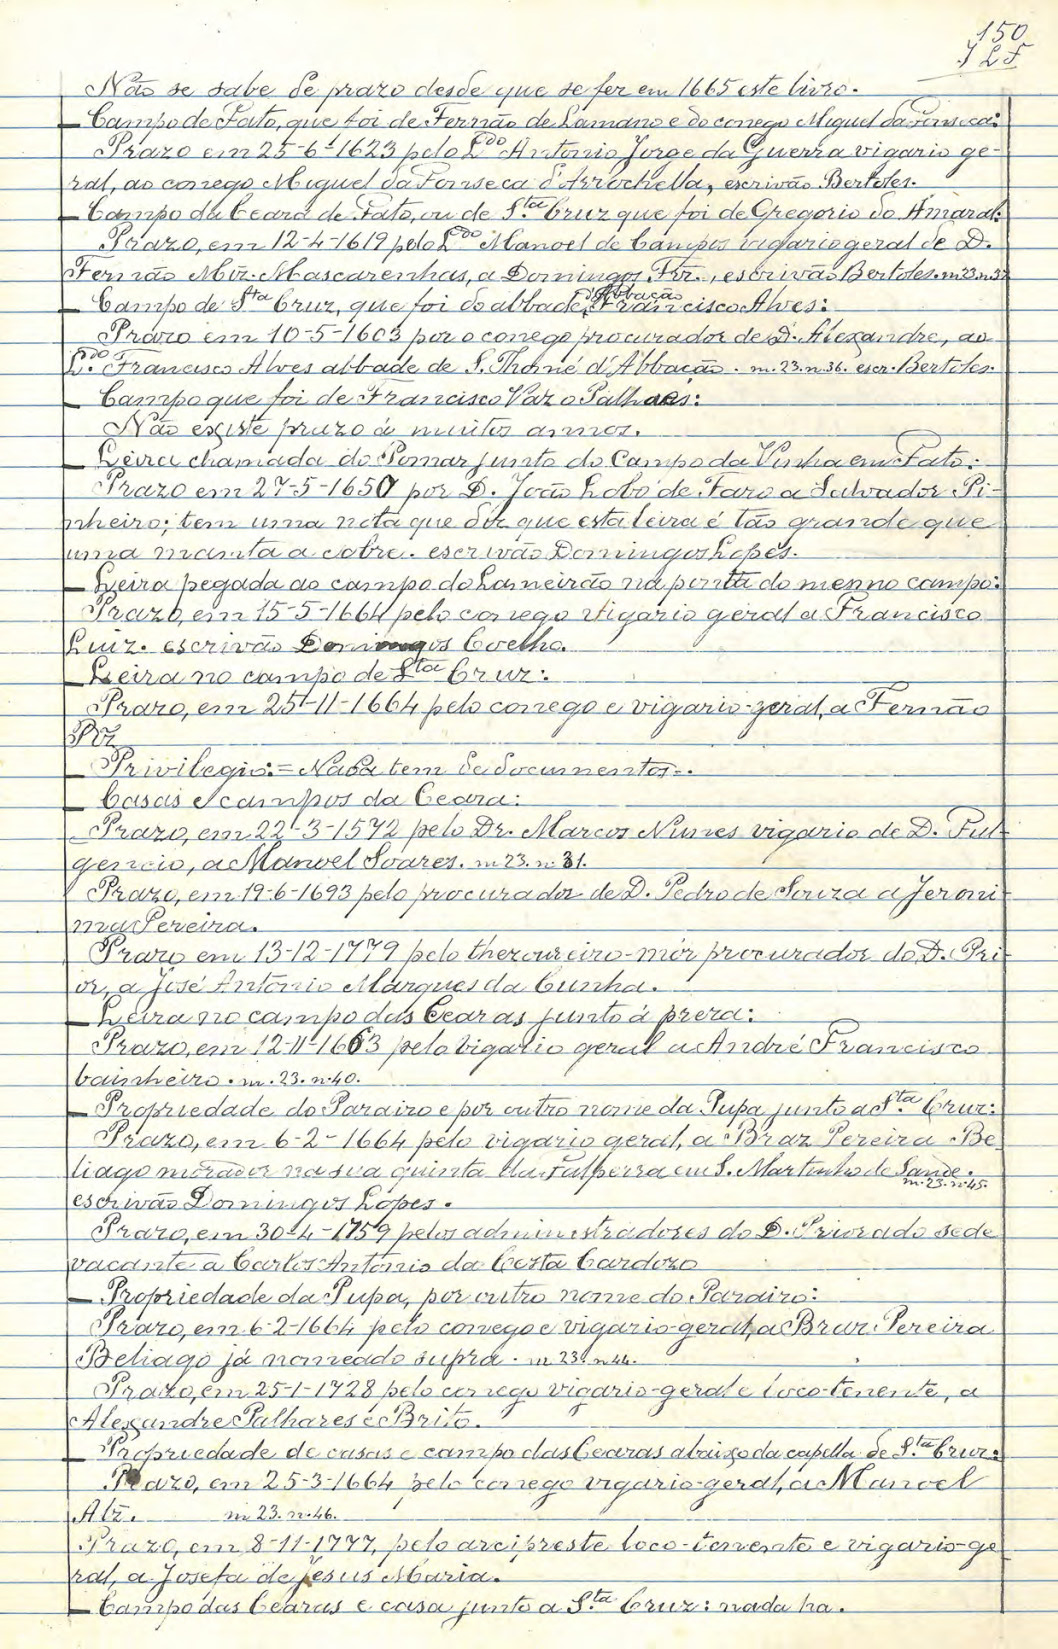 150
J L F
Não se sabe de prazo desde que se fez em 1665 este livro.
Campo de Fato, que foi de Fernão de Lamano e do conego Miguel da Fonseca:
Prazo em 25-6-1623 pelo L.do Antonio Jorge da Guerra vigario ge-
ral, ao conego Miguel da Fonseca d'Arrochella, escrivão Bertoles.
Campo da Ceara de Fato, ou de S.ta Cruz que foi de Gregorio do Amaral:
Prazo, em 12-4-1619 pelo L.do Manoel de Campos vigario geral de D.
Fernão Miz. Mascarenhas, a Domingos Frz., escrivão Bertoles. m. 23. n. 37
Campo de S.ta Cruz, que foi do abbade d'Abbação Francisco Alves:
Prazo em 10-5-1603 por o conego procurador de D. Alexandre, ao
L.do Francisco Alves abbade de S. Thomé d'Abbação. m. 23. n. 36. escr. Bertoles.
Campo que foi de Francisco Vaz o Palhaes:
Não existe prazo á muitos annos.
Leira chamada do Pomar junto do Campo da Vinha em Fato:
Prazo em 27-5-1650 por D. João Lobo de Faro a Salvador Pi-
nheiro; tem uma nota que diz que esta leira é tão grande que
uma manta a cobre. escrivão Domingos Lopes.
Leira pegada ao campo do Lameirão na ponta do mesmo campo:
Prazo, em 15-5-1664 pelo conego vigario geral a Francisco
Luiz. escrivão Domingos Coelho.
Leira no campo de S.ta Cruz:
Prazo, em 25-11-1664 pelo conego e vigario-geral, a Fernão
Piz
Privilegio: = Nada tem de documentos.
Casas e campos da Ceara:
Prazo, em 22-3-1572 pelo Dr. Marcos Nunes vigario de D. Ful-
gencio, a Manoel Soares. m. 23. n. 31.
Prazo, em 19-6-1693 pelo procurador de D. Pedro de Souza a Jeroni-
ma Pereira.
Prazo em 13-12-1779 pelo thezoureiro-mór procurador do D. Pri-
or, a José Antonio Marques da Cunha.
Leira no campo das Cearas junto á preza:
Prazo, em 12-11-1663 pelo vigario geral a André Francisco
bainheiro. m. 23. n. 40.
Propriedade do Paraizo e por outro nome da Pupa junto a S.ta Cruz:
Prazo, em 6-2-1664 pelo vigario geral, a Braz Pereira Be-
liago morador na sua quinta da Falperra em S. Martinho de Sande.
m. 23. n. 45.
escrivão Domingos Lopes.
Prazo, em 30-4-1759 pelos administradores do D. Priorado sede
vacante a Carlos Antonio da Costa Cardozo
Propriedade da Pupa, por outro nome do Paraizo:
Prazo, em 6-2-1664 pelo conego e vigario-geral, a Braz Pereira
Beliago já nomeado supra. m. 23. n. 44.
Prazo, em 25-1-1728 pelo conego vigario-geral e loco-tenente, a
Alexandre Palhares e Brito.
Propriedade de casas e campo das Cearas abaixo da capella de S.ta Cruz:
Prazo, em 25-3-1664 pelo conego vigario-geral, a Manoel
Alz. m. 23. n. 46.
Prazo, em 8-11-1777, pelo arcipreste loco-tenente e vigario-ge-
ral, a Josefa de Jesus Maria.
Campo das Cearas e casa junto a S.ta Cruz: nada ha.